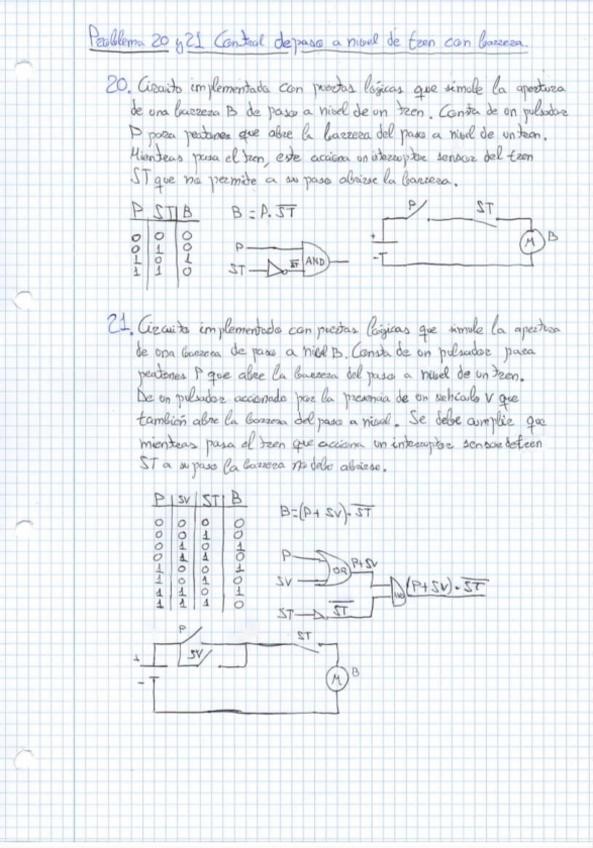 Problema 20 y 21 Control de paso a nivel de tren con barrera.
20. Circuito implementado con puertas lógicas que simule la apertura
de una barrera B de paso a nivel de un tren. Consta de un pulsador
P para peatones que abre la barrera del paso a nivel de un tren.
Mientras pasa el tren, este acciona un interruptor sensor del tren
ST que no permite a su paso abrirse la barrera.
P ST B
0 0 0
0 1 0
1 0 1
1 1 0
B = P. S̅T̅
P
ST
S̅T̅
AND
P
ST
+
-
M
B
21. Circuito implementado con puertas lógicas que simule la apertura
de una barrera de paso a nivel B. Consta de un pulsador para
peatones P que abre la barrera del paso a nivel de un tren.
De un pulsador accionado por la presencia de un vehículo V que
también abre la barrera del paso a nivel. Se debe cumplir que
mientras pasa el tren que acciona un interruptor sensor de tren
ST a su paso la barrera no debe abrirse.
P SV ST B
0 0 0 0
0 0 1 0
0 1 0 1
0 1 1 0
1 0 0 1
1 0 1 0
1 1 0 1
1 1 1 0
B=(P+SV)·S̅T̅
P
SV
OR
P+SV
ST
S̅T̅
(P+SV)·S̅T̅
P
SV
ST
+
-
M
B